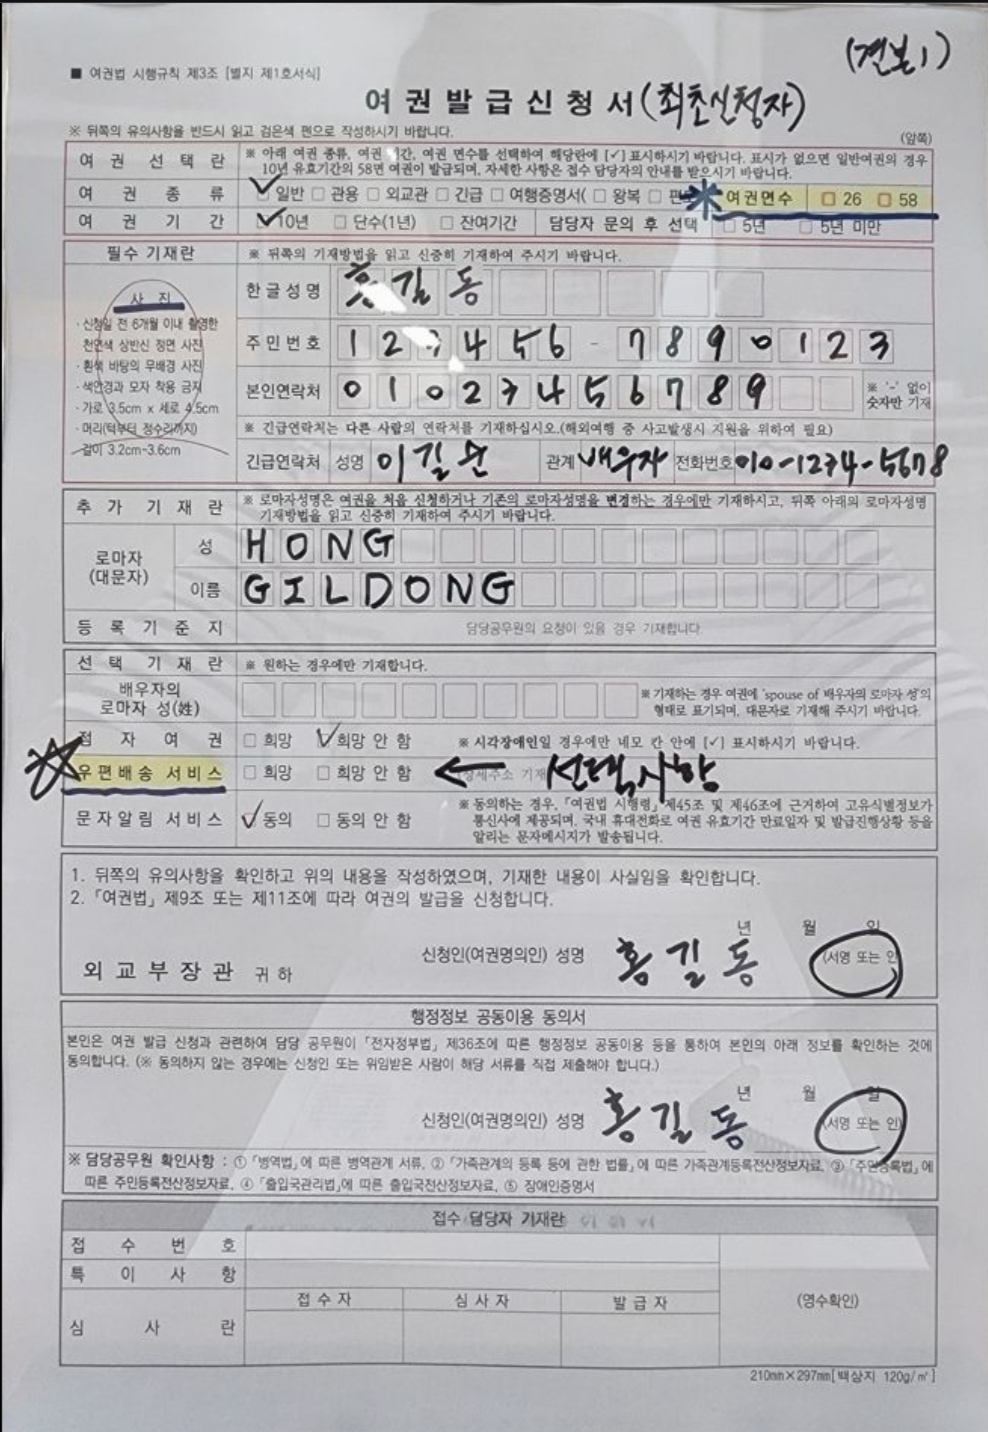 (견본1)
■ 여권법 시행규칙 제3조 [별지 제1호서식]
여권발급신청서(최초신청자)
※ 뒤쪽의 유의사항을 반드시 읽고 검은색 펜으로 작성하시기 바랍니다.
(앞쪽)
여 권 선 택 란 ※ 아래 여권 종류, 여권 기간, 여권 면수를 선택하여 해당란에 [✓] 표시하시기 바랍니다. 표시가 없으면 일반여권의 경우
10년 유효기간의 58면 여권이 발급되며, 자세한 사항은 접수 담당자의 안내를 받으시기 바랍니다.
여 권 종 류 ✓ 일반 □ 관용 □ 외교관 □ 긴급 □ 여행증명서( □ 왕복 □ 편도 여권면수 □ 26 □ 58
여 권 기 간 ✓ 10년 □ 단수(1년) □ 잔여기간 담당자 문의 후 선택 □ 5년 □ 5년 미만
필수 기재란 ※ 뒤쪽의 기재방법을 읽고 신중히 기재하여 주시기 바랍니다.
사 진
· 신청일 전 6개월 이내 촬영한
천연색 상반신 정면 사진
· 흰색 바탕의 무배경 사진
· 색안경과 모자 착용 금지
· 가로 3.5cm x 세로 4.5cm
· 머리(턱부터 정수리까지)
길이 3.2cm-3.6cm
한글성명 홍길동
주민번호 123456 - 7890123
본인연락처 01023456789 ※ '-' 없이
숫자만 기재
※ 긴급연락처는 다른 사람의 연락처를 기재하십시오.(해외여행 중 사고발생시 지원을 위하여 필요)
긴급연락처 성명 이길순 관계 배우자 전화번호 010-1234-5678
추 가 기 재 란 ※ 로마자성명은 여권을 처음 신청하거나 기존의 로마자성명을 변경하는 경우에만 기재하시고, 뒤쪽 아래의 로마자성명
기재방법을 읽고 신중히 기재하여 주시기 바랍니다.
로마자
(대문자)
성 HONG
이름 GILDONG
등 록 기 준 지 담당공무원의 요청이 있을 경우 기재합니다
선 택 기 재 란 ※ 원하는 경우에만 기재합니다.
배우자의
로마자 성(姓)
※ 기재하는 경우 여권에 'spouse of 배우자의 로마자 성'의
형태로 표기되며, 대문자로 기재해 주시기 바랍니다.
점 자 여 권 □ 희망 ✓ 희망 안 함 ※ 시각장애인일 경우에만 네모 칸 안에 [✓] 표시하시기 바랍니다.
우편배송 서비스 □ 희망 □ 희망 안 함 ← (상세주소 기재 선택사항
문자알림 서비스 ✓ 동의 □ 동의 안 함
※ 동의하는 경우, 「여권법 시행령」 제45조 및 제46조에 근거하여 고유식별정보가
통신사에 제공되며, 국내 휴대전화로 여권 유효기간 만료일자 및 발급진행상황 등을
알리는 문자메시지가 발송됩니다.
1. 뒤쪽의 유의사항을 확인하고 위의 내용을 작성하였으며, 기재한 내용이 사실임을 확인합니다.
2. 「여권법」 제9조 또는 제11조에 따라 여권의 발급을 신청합니다.
년 월 일
신청인(여권명의인) 성명 홍길동 (서명 또는 인)
외교부장관 귀하
행정정보 공동이용 동의서
본인은 여권 발급 신청과 관련하여 담당 공무원이 「전자정부법」 제36조에 따른 행정정보 공동이용 등을 통하여 본인의 아래 정보를 확인하는 것에
동의합니다. (※ 동의하지 않는 경우에는 신청인 또는 위임받은 사람이 해당 서류를 직접 제출해야 합니다.)
년 월 일
신청인(여권명의인) 성명 홍길동 (서명 또는 인)
※ 담당공무원 확인사항 : ① 「병역법」에 따른 병역관계 서류, ② 「가족관계의 등록 등에 관한 법률」에 따른 가족관계등록전산정보자료, ③ 「주민등록법」에
따른 주민등록전산정보자료, ④ 「출입국관리법」에 따른 출입국전산정보자료, ⑤ 장애인증명서
접수 담당자 기재란
접 수 번 호
특 이 사 항
심 사 란
접 수 자 심 사 자 발 급 자
(영수확인)
210㎜×297㎜[백상지 120g/㎡]